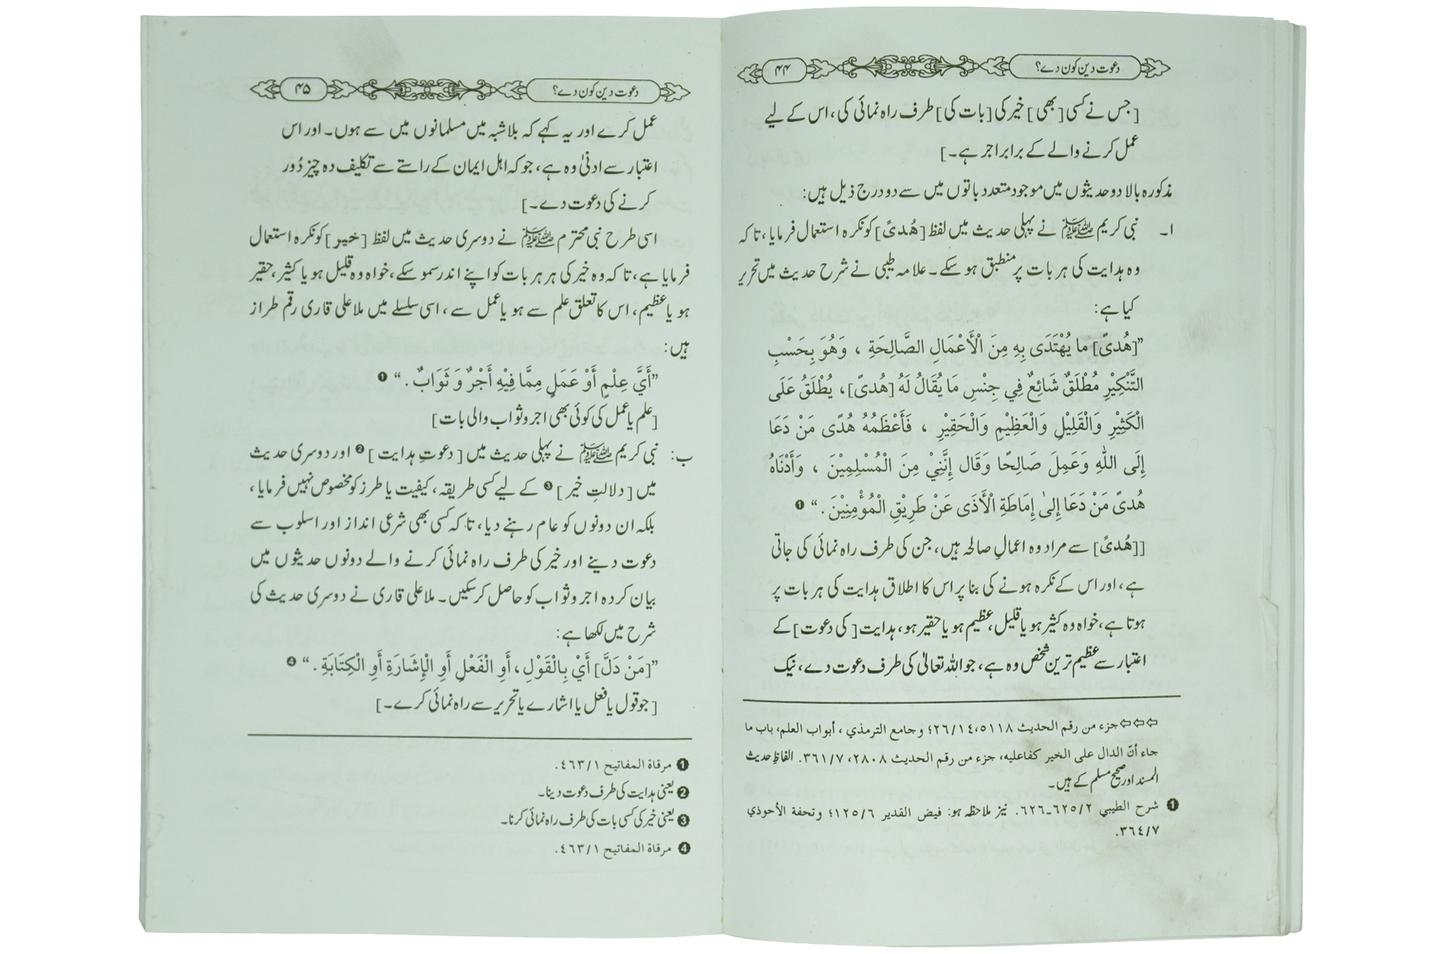 دعوت دین کون دے؟
۴۴
[جس نے کسی [بھی] خیر کی [بات کی] طرف راہ نمائی کی، اس کے لیے
عمل کرنے والے کے برابر اجر ہے۔]
مذکورہ بالا دو حدیثوں میں موجود متعدد باتوں میں سے دو درج ذیل ہیں:
ا۔ نبی کریم ﷺ نے پہلی حدیث میں لفظ [ھُدیً] کو نکرہ استعمال فرمایا، تاکہ
وہ ہدایت کی ہر بات پر منطبق ہو سکے۔ علامہ طیبی نے شرح حدیث میں تحریر
کیا ہے:
”[هُدىً] ما يُهْتَدَى بِهِ مِنَ الْأَعْمَالِ الصَّالِحَةِ ، وَهُوَ بِحَسْبِ
التَّنْكِيْرِ مُطْلَقٌ شَائِعٌ فِي جِنْسِ مَا يُقَالُ لَهُ [هُدىً]، يُطْلَقُ عَلَى
الْكَثِيْرِ وَالْقَلِيْلِ وَالْعَظِيْمِ وَالْحَقِيْرِ ، فَأَعْظَمُهُ هُدًى مَنْ دَعَا
إِلَى اللّٰهِ وَعَمِلَ صَالِحًا وَقَال إِنَّنِيْ مِنَ الْمُسْلِمِيْنَ ، وَأَدْنَاهُ
هُدىً مَنْ دَعَا إِلىٰ إِمَاطَةِ الْأَذَى عَنْ طَرِيْقِ الْمُؤْمِنِيْنَ .“ ❶
[[ھُدیً] سے مراد وہ اعمالِ صالحہ ہیں، جن کی طرف راہ نمائی کی جاتی
ہے، اور اس کے نکرہ ہونے کی بنا پر اس کا اطلاق ہدایت کی ہر بات پر
ہوتا ہے، خواہ وہ کثیر ہو یا قلیل، عظیم ہو یا حقیر ہو، ہدایت [کی دعوت] کے
اعتبار سے عظیم ترین شخص وہ ہے، جو اللہ تعالیٰ کی طرف دعوت دے، نیک
⇦⇦⇦ جزء من رقم الحديث ٥١١٨، ٢٦/١٤؛ وجامع الترمذي ، أبواب العلم، باب ما
جاء أنّ الدال على الخير كفاعليه، جزء من رقم الحديث ٢٨٠٨، ٣٦١/٧. الفاظِ حدیث
المسند اور صحیح مسلم کے ہیں۔
❶ شرح الطيبي ٦٢٥/٢ـ٦٢٦. نیز ملاحظہ ہو: فيض القدير ١٢٥/٦؛ وتحفة الأحوذي
٣٦٤/٧.
دعوت دین کون دے؟
۴۵
عمل کرے اور یہ کہے کہ بلاشبہ میں مسلمانوں میں سے ہوں۔ اور اس
اعتبار سے ادنیٰ وہ ہے، جو کہ اہل ایمان کے راستے سے تکلیف دہ چیز دُور
کرنے کی دعوت دے۔]
اسی طرح نبی محترم ﷺ نے دوسری حدیث میں لفظ [خیر] کو نکرہ استعمال
فرمایا ہے، تاکہ وہ خیر کی ہر ہر بات کو اپنے اندر سمو سکے، خواہ وہ قلیل ہو یا کثیر، حقیر
ہو یا عظیم، اس کا تعلق علم سے ہو یا عمل سے، اسی سلسلے میں ملا علی قاری رقم طراز
ہیں:
”أَيَّ عِلْمٍ أَوْ عَمَلٍ مِمَّا فِيْهِ أَجْرٌ وَ ثَوَابٌ .“ ❶
[علم یا عمل کی کوئی بھی اجر و ثواب والی بات]
ب: نبی کریم ﷺ نے پہلی حدیث میں [دعوتِ ہدایت] ❷ اور دوسری حدیث
میں [دلالتِ خیر] ❸ کے لیے کسی طریقہ، کیفیت یا طرز کو مخصوص نہیں فرمایا،
بلکہ ان دونوں کو عام رہنے دیا، تاکہ کسی بھی شرعی انداز اور اسلوب سے
دعوت دینے اور خیر کی طرف راہ نمائی کرنے والے دونوں حدیثوں میں
بیان کردہ اجر و ثواب کو حاصل کر سکیں۔ ملا علی قاری نے دوسری حدیث کی
شرح میں لکھا ہے:
”[مَنْ دَلَّ] أَيْ بِالْقَوْلِ، أَوِ الْفَعْلِ أَوِ الْإِشَارَةِ أَوِ الْكِتَابَةِ .“ ❹
[جو قول یا فعل یا اشارے یا تحریر سے راہ نمائی کرے۔]
❶ مرقاة المفاتيح ٤٦٣/١.
❷ یعنی ہدایت کی طرف دعوت دینا۔
❸ یعنی خیر کی کسی بات کی طرف راہ نمائی کرنا۔
❹ مرقاة المفاتيح ٤٦٣/١.